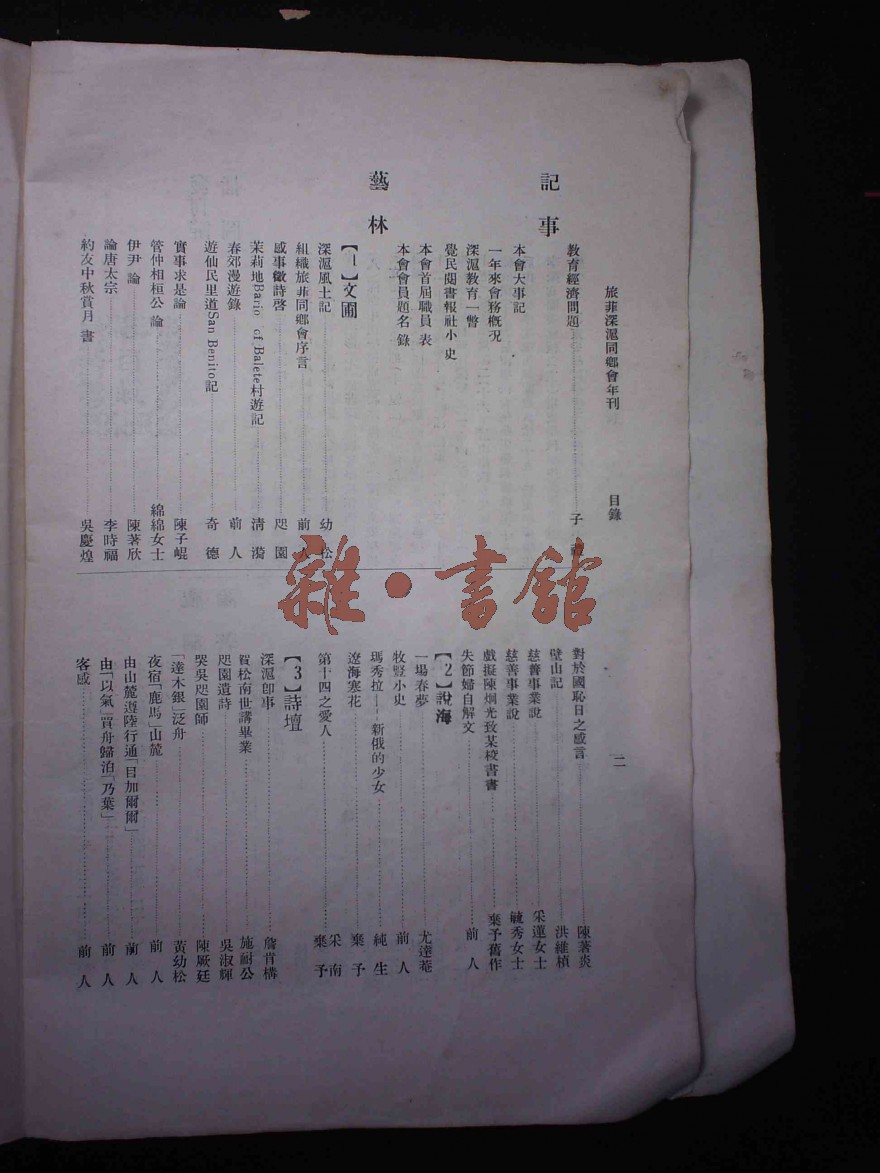 旅菲深滬同鄉會年刊 目錄 二
教育經濟問題 子
記事
本會大事記
一年來會務概況
深滬教育一瞥
覺民閱書報社小史
本會首屆職員表
本會會員題名錄
藝林
【1】文圃
深滬風土記 幼松
組織旅菲同鄉會序言 前人
感事徵詩啓 咫園
茉莉地Bario of Balete村遊記 清漪
春郊漫遊錄 前人
遊仙民里道San Benito記 奇德
實事求是論 陳子崐
管仲相桓公論 綿綿女士
伊尹論 陳著欣
論唐太宗 李時福
約友中秋賞月書 吳慶煌
對於國恥日之感言 陳著炎
壁山記 洪維楨
慈善事業說 采蓮女士
慈善事業說 毓秀女士
戲擬陳烱光致某校書書 棄予舊作
失節婦自解文 前人
【2】說海
一場春夢 尤達菴
牧豎小史 前人
瑪秀拉——新俄的少女 純生
遼海寒花 棄予
第十四之愛人 采南 棄予
【3】詩壇
深滬卽事 詹肯構
賀松南世講畢業 施耐公
咫園遺詩 吳淑輝
哭吳咫園師 陳厥廷
「達木銀」泛舟 黃幼松
夜宿「鹿馬」山麓 前人
由山麓遵陸行通「目加爾爾」 前人
由「以氣」買舟歸泊「乃葉」 前人
客感 前人
雜·書館